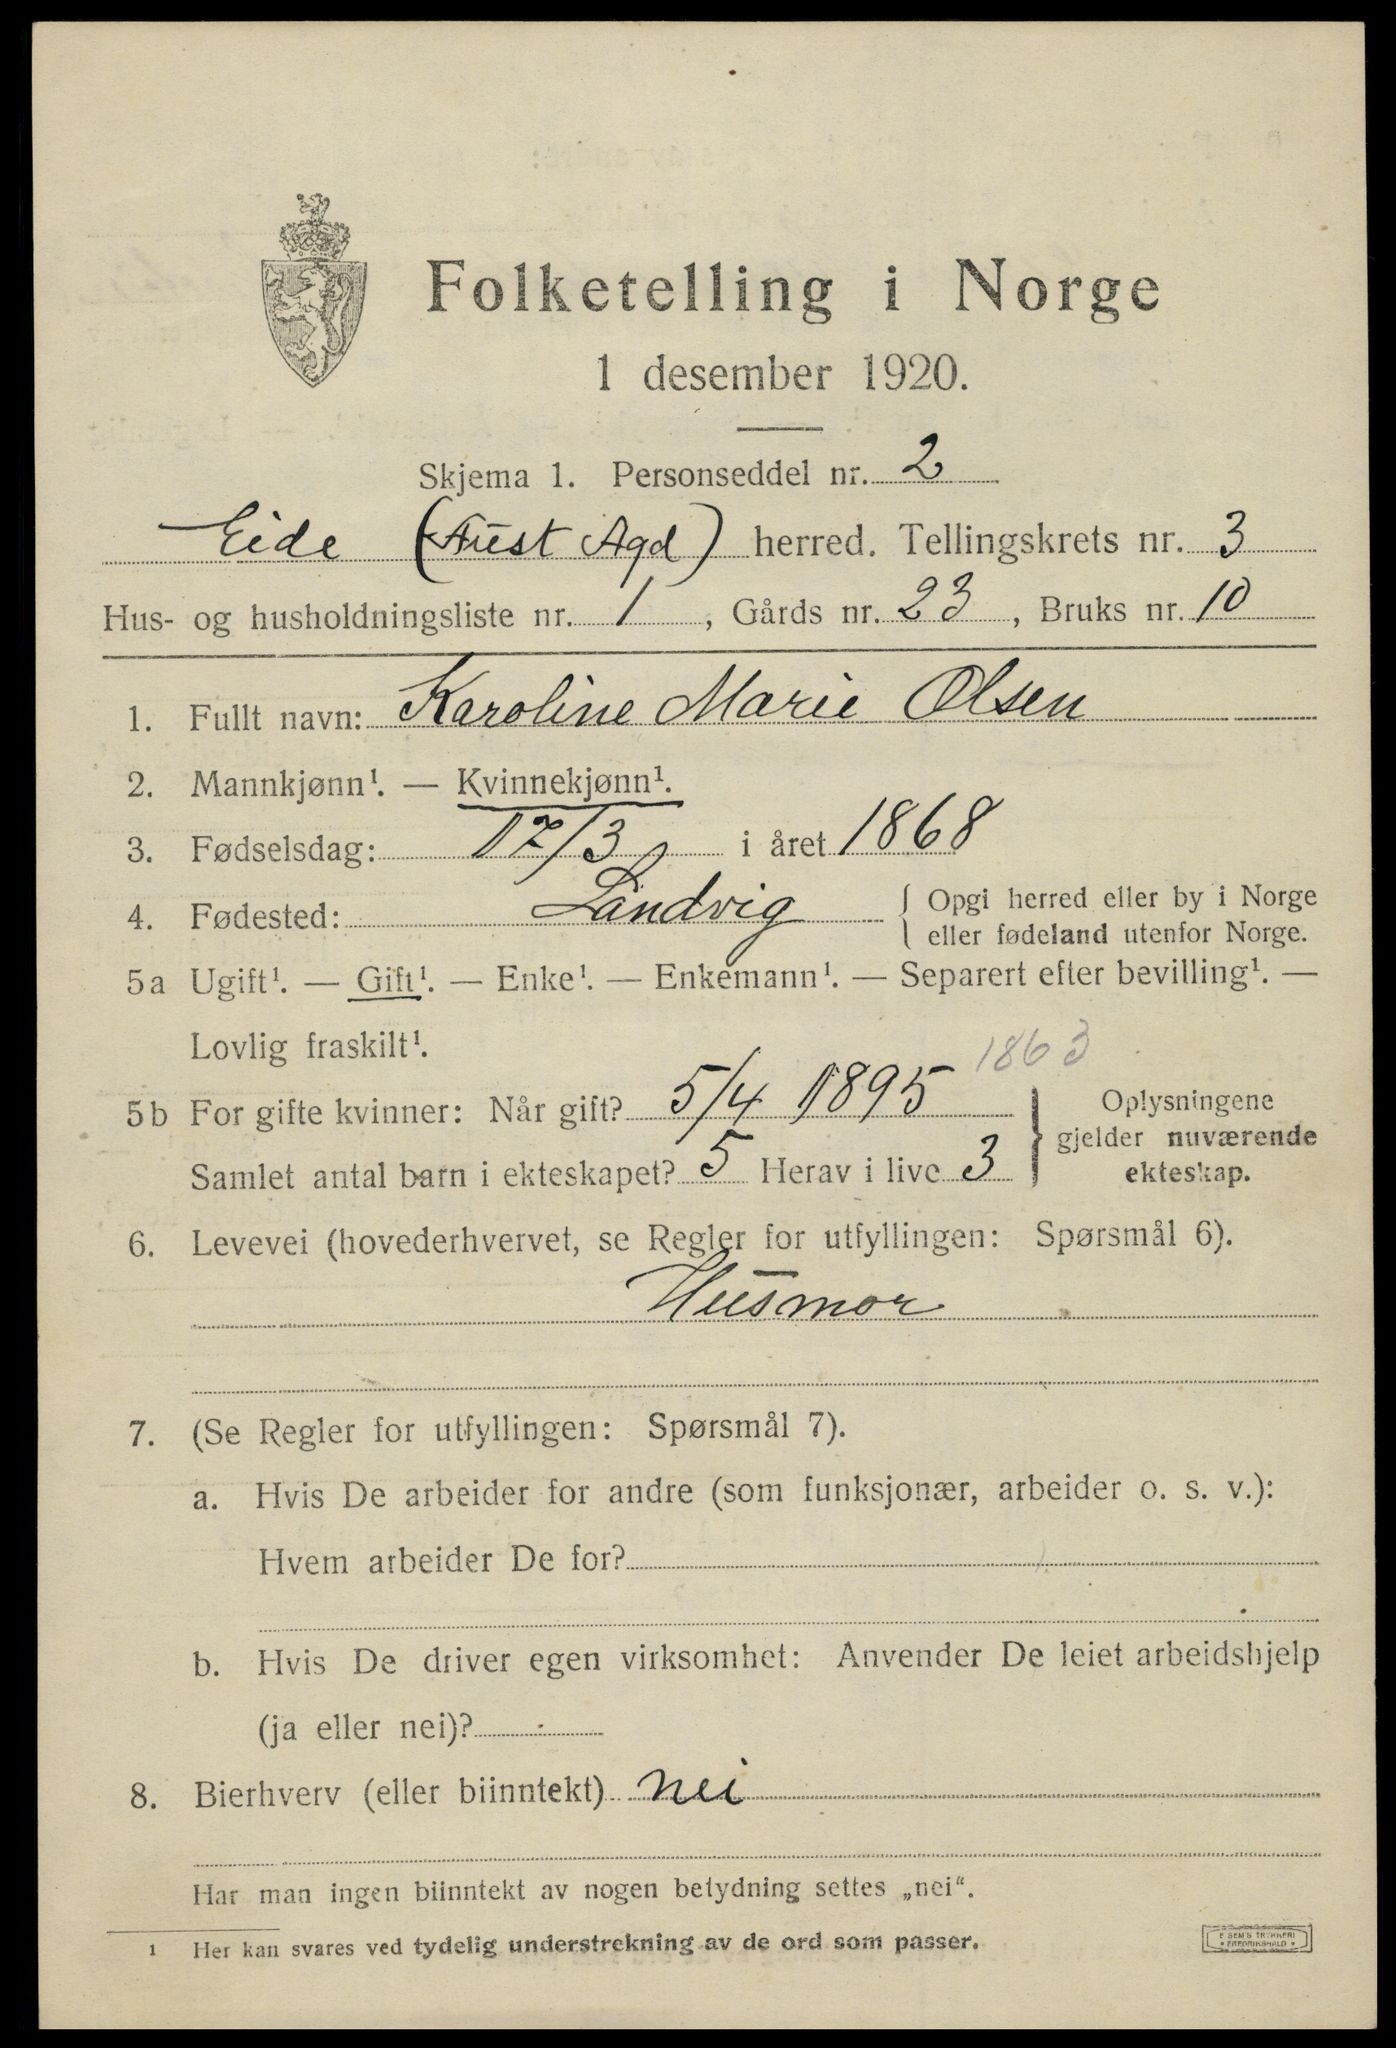 Folketelling i Norge
1 desember 1920.
Skjema 1. Personseddel nr. 2
Eide (Aust Agd) herred. Tellingskrets nr. 3
Hus- og husholdningsliste nr. 1, Gårds nr. 23, Bruks nr. 10
1. Fullt navn: Karoline Marie Olsen
2. Mannkjønn¹. — Kvinnekjønn¹.
3. Fødselsdag: 17/3 i året 1868
4. Fødested: Landvig { Opgi herred eller by i Norge
eller fødeland utenfor Norge.
5a Ugift¹. — Gift¹. — Enke¹. — Enkemann¹. — Separert efter bevilling¹. —
Lovlig fraskilt¹.
1863
5b For gifte kvinner: Når gift? 5/4 1895 } Oplysningene
gjelder nuværende
Samlet antal barn i ekteskapet? 5 Herav i live 3 ekteskap.
6. Levevei (hovederhvervet, se Regler for utfyllingen: Spørsmål 6).
Husmor
7. (Se Regler for utfyllingen: Spørsmål 7).
a. Hvis De arbeider for andre (som funksjonær, arbeider o. s. v.):
Hvem arbeider De for?
b. Hvis De driver egen virksomhet: Anvender De leiet arbeidshjelp
(ja eller nei)?
8. Bierhverv (eller biinntekt) nei
Har man ingen biinntekt av nogen betydning settes „nei“.
¹ Her kan svares ved tydelig understrekning av de ord som passer.
E. SEM'S TRYKKERI
• FREDRIKSHALD •